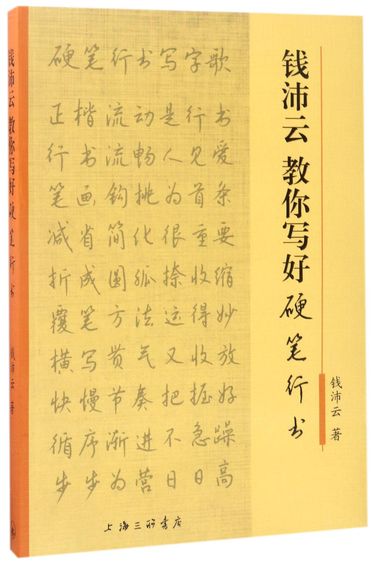 钱沛云 教你写好 硬笔行书
钱沛云 著
硬笔行书写字歌
正楷流动是行书
行书流畅人见爱
笔画钩挑为首条
减省简化很重要
折成圆弧捺收缩
覆笔方法运得妙
横写贯气又收放
快慢节奏把握好
循序渐进不急躁
步步为营日日高
上海三联书店
钱沛云 教你写好 硬笔行书
钱沛云 著